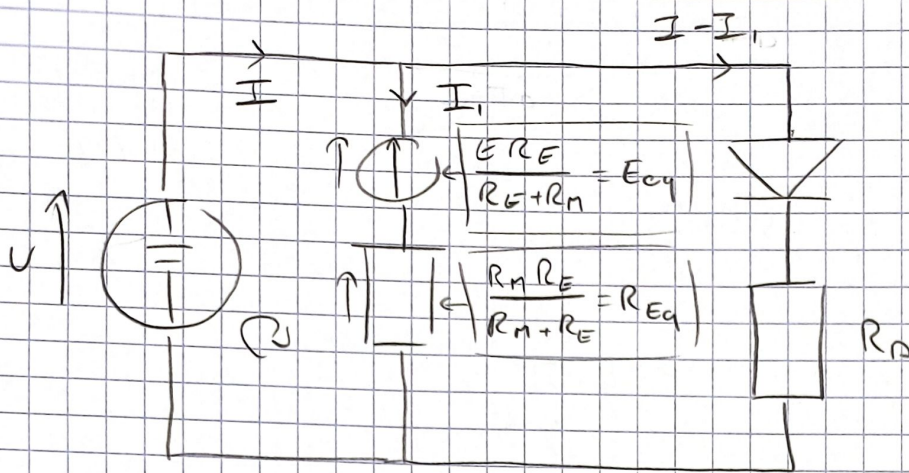 I - I₁
I
I₁
E R_E / (R_E + R_M) = E_eq
U
R_M R_E / (R_M + R_E) = R_Eq